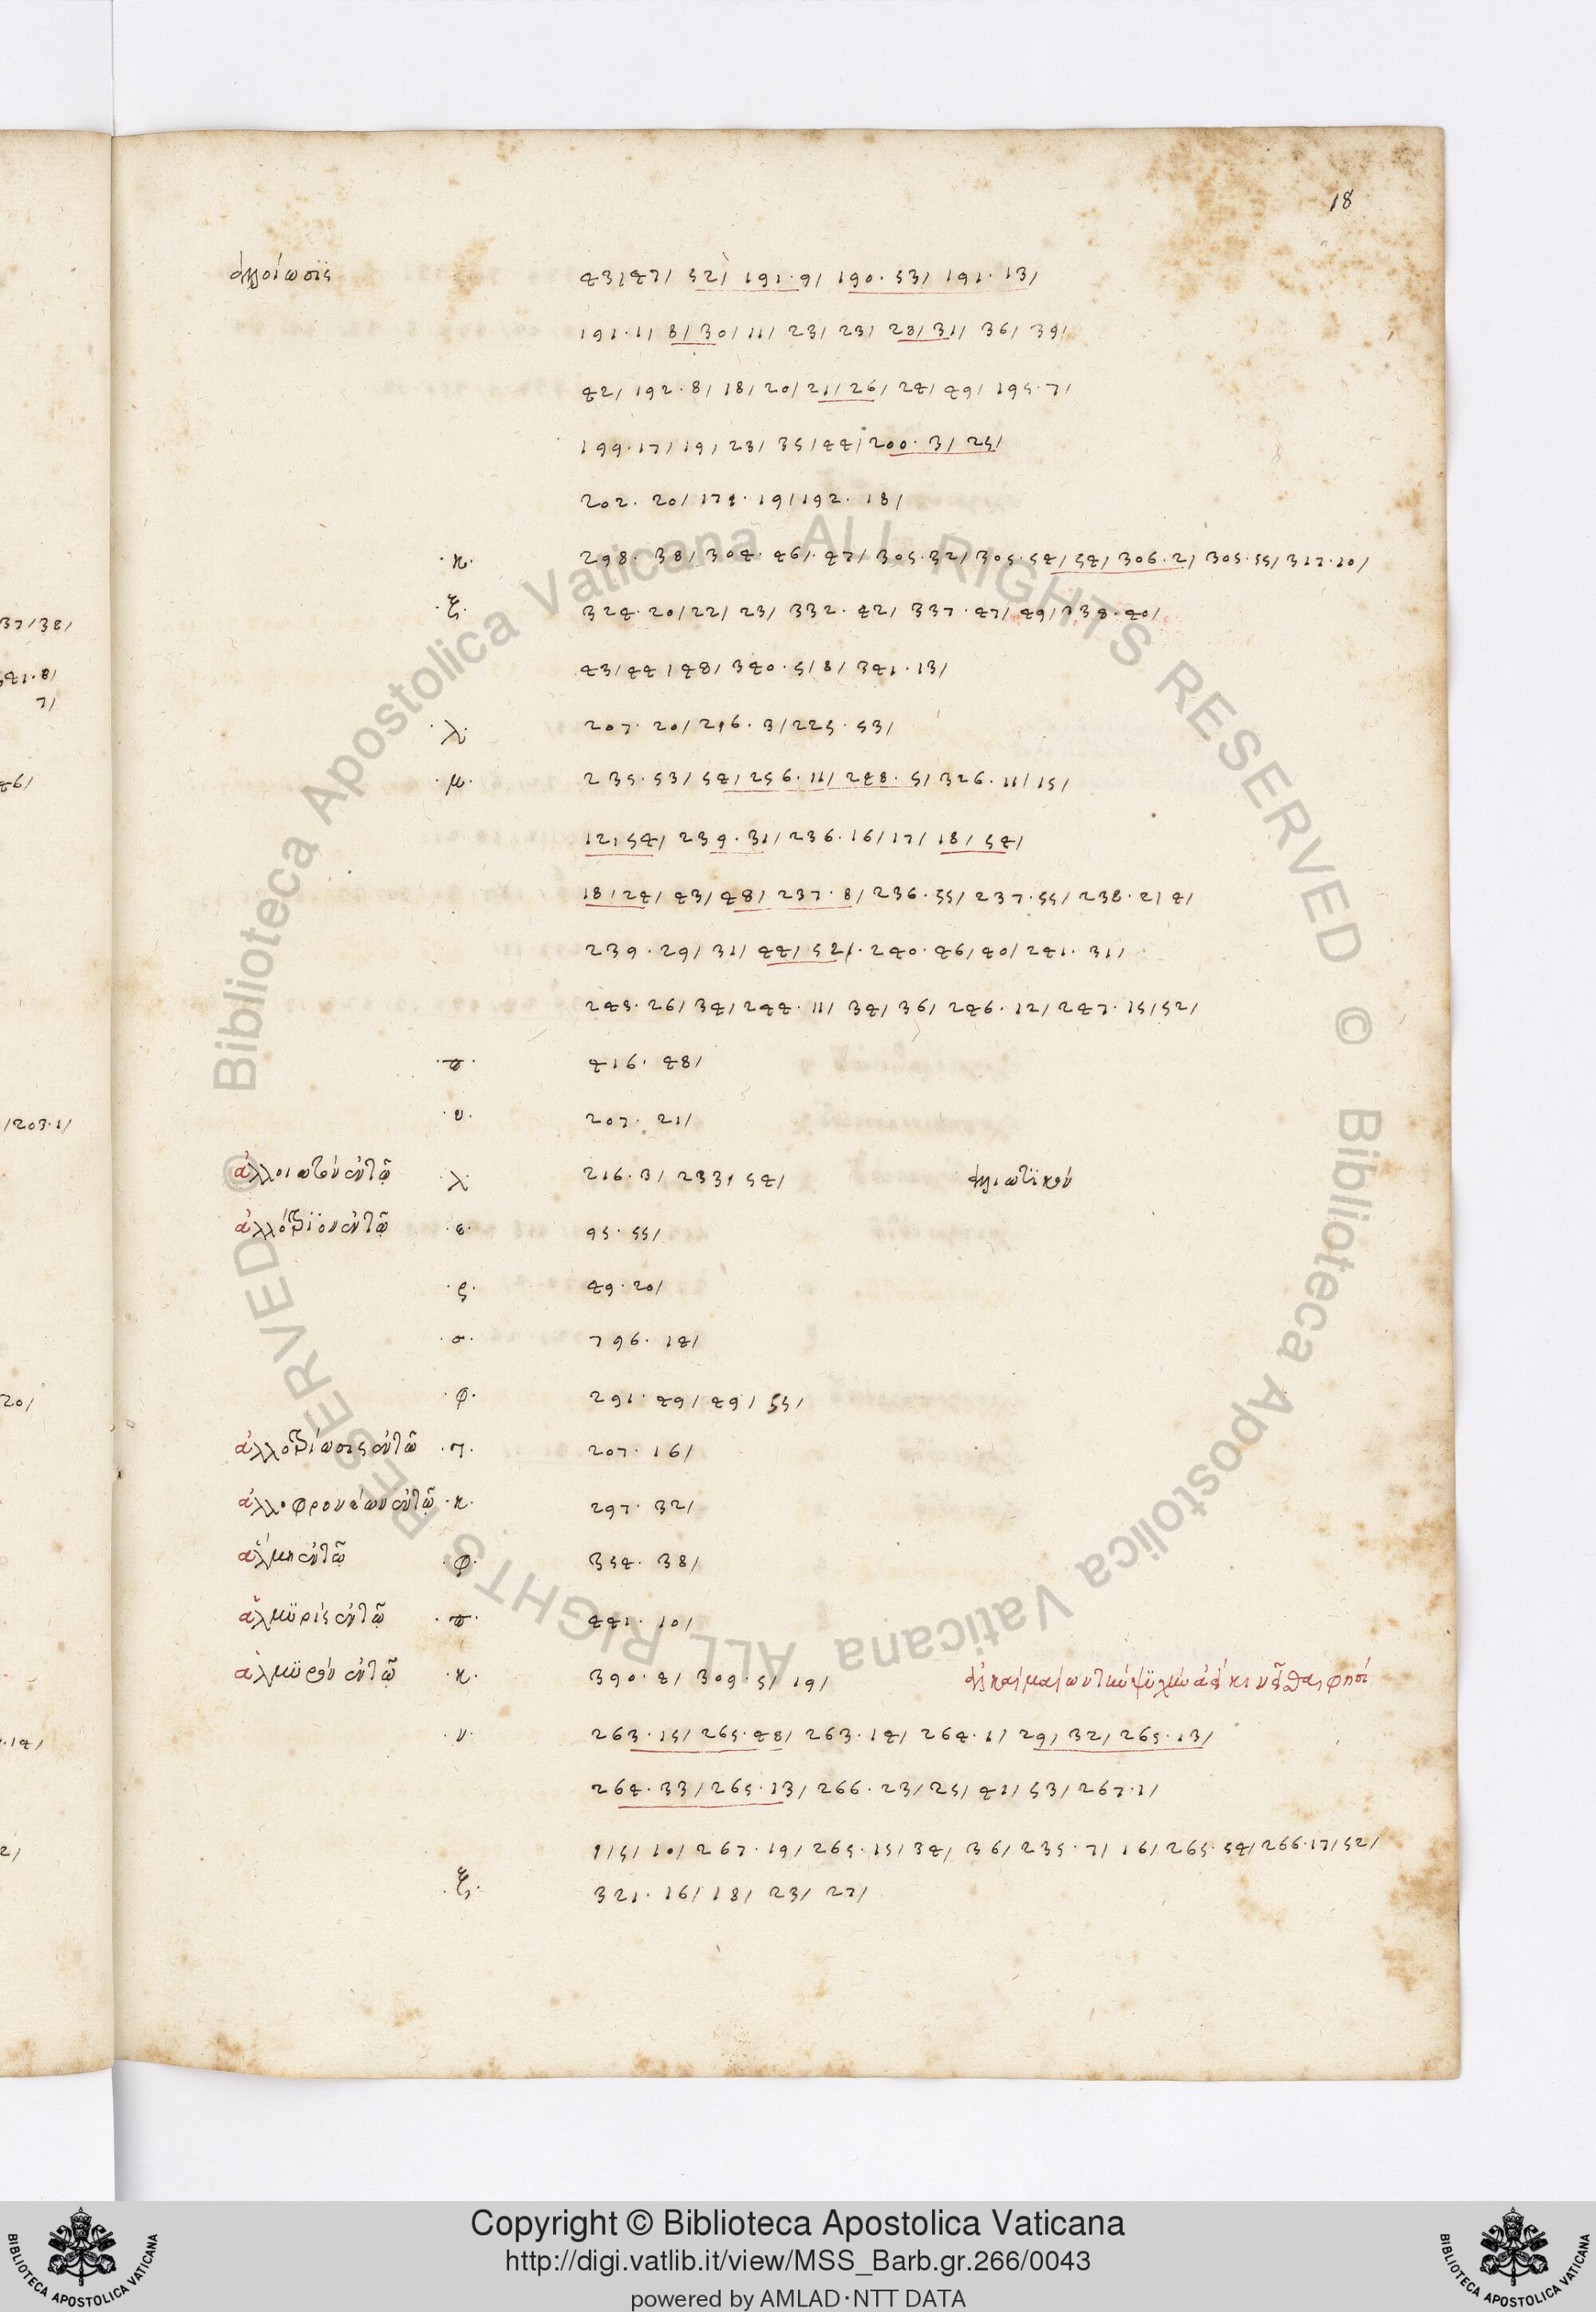 18
ἀλλοίωσϊς 43/47/ 52/ 191·9/ 190·53/ 191·13/
191·1/ 8/30/11/ 23/ 23/ 28/31/ 36/ 39/
42/ 192·8/ 18/ 20/21/26/ 24/ 49/ 195·7/
199·17/19/ 23/ 35/44/200·3/ 25/
202·20/ 174·19/192·18/
·κ· 298·38/304·46/·47/305·32/305·54/54/306·2/305·55/317·10/
·ξ· 324·20/22/ 23/ 332·42/ 337·47/49/338·40/
43/44/48/ 340·5/8/ 341·13/
·λ· 207·20/216·3/225·53/
·μ· 235·53/54/256·11/248·5/326·11/15/
12/54/ 239·31/236·16/17/ 18/54/
18/24/ 43/48/ 237·8/236·55/237·55/238·2/4/
239·29/ 31/ 44/52/·240·46/40/241·31/
243·26/34/244·11/ 34/ 36/ 246·12/ 247·15/52/
·π· 416·48/
·υ· 207·21/
ἀλλοιωτὸν ἐν τῷ ·λ· 216·3/ 233/ 54/ ἀλλοιωτϊκὸν
ἀλλότριον ἐν τῷ ·ε· 95·55/
·ς· 49·20/
·σ· 796·14/
·φ· 291·49/49/55/
ἀλλοτρίωσις ἐν τῷ ·π· 207·16/
ἀλλοφρονέων ἐν τῷ ·κ· 297·32/
ἅλμη ἐν τῷ ·φ· 354·38/
ἁλμϋρὶς ἐν τῷ ·π· 441·10/
ἁλμϋρὸν ἐν τῷ ·κ· 390·4/ 309·5/ 19/
·ν· 263·15/ 265·48/ 263·14/ 264·1/ 29/ 32/ 265·13/
264·33/265·13/266·23/25/ 41/ 53/ 267·1/
1/5/10/ 267·19/ 265·15/34/ 36/235·7/ 16/265·54/266·17/52/
·ξ· 321·16/18/ 23/ 27/
37/38/
341·8/
7/
46/
/203·1/
20/
·14/
2/
Copyright © Biblioteca Apostolica Vaticana
http://digi.vatlib.it/view/MSS_Barb.gr.266/0043
powered by AMLAD·NTT DATA
BIBLIOTECA APOSTOLICA VATICANA
BIBLIOTECA APOSTOLICA VATICANA
© Biblioteca Apostolica Vaticana ALL RIGHTS RESERVED © Biblioteca Apostolica Vaticana ALL RIGHTS RESERVED